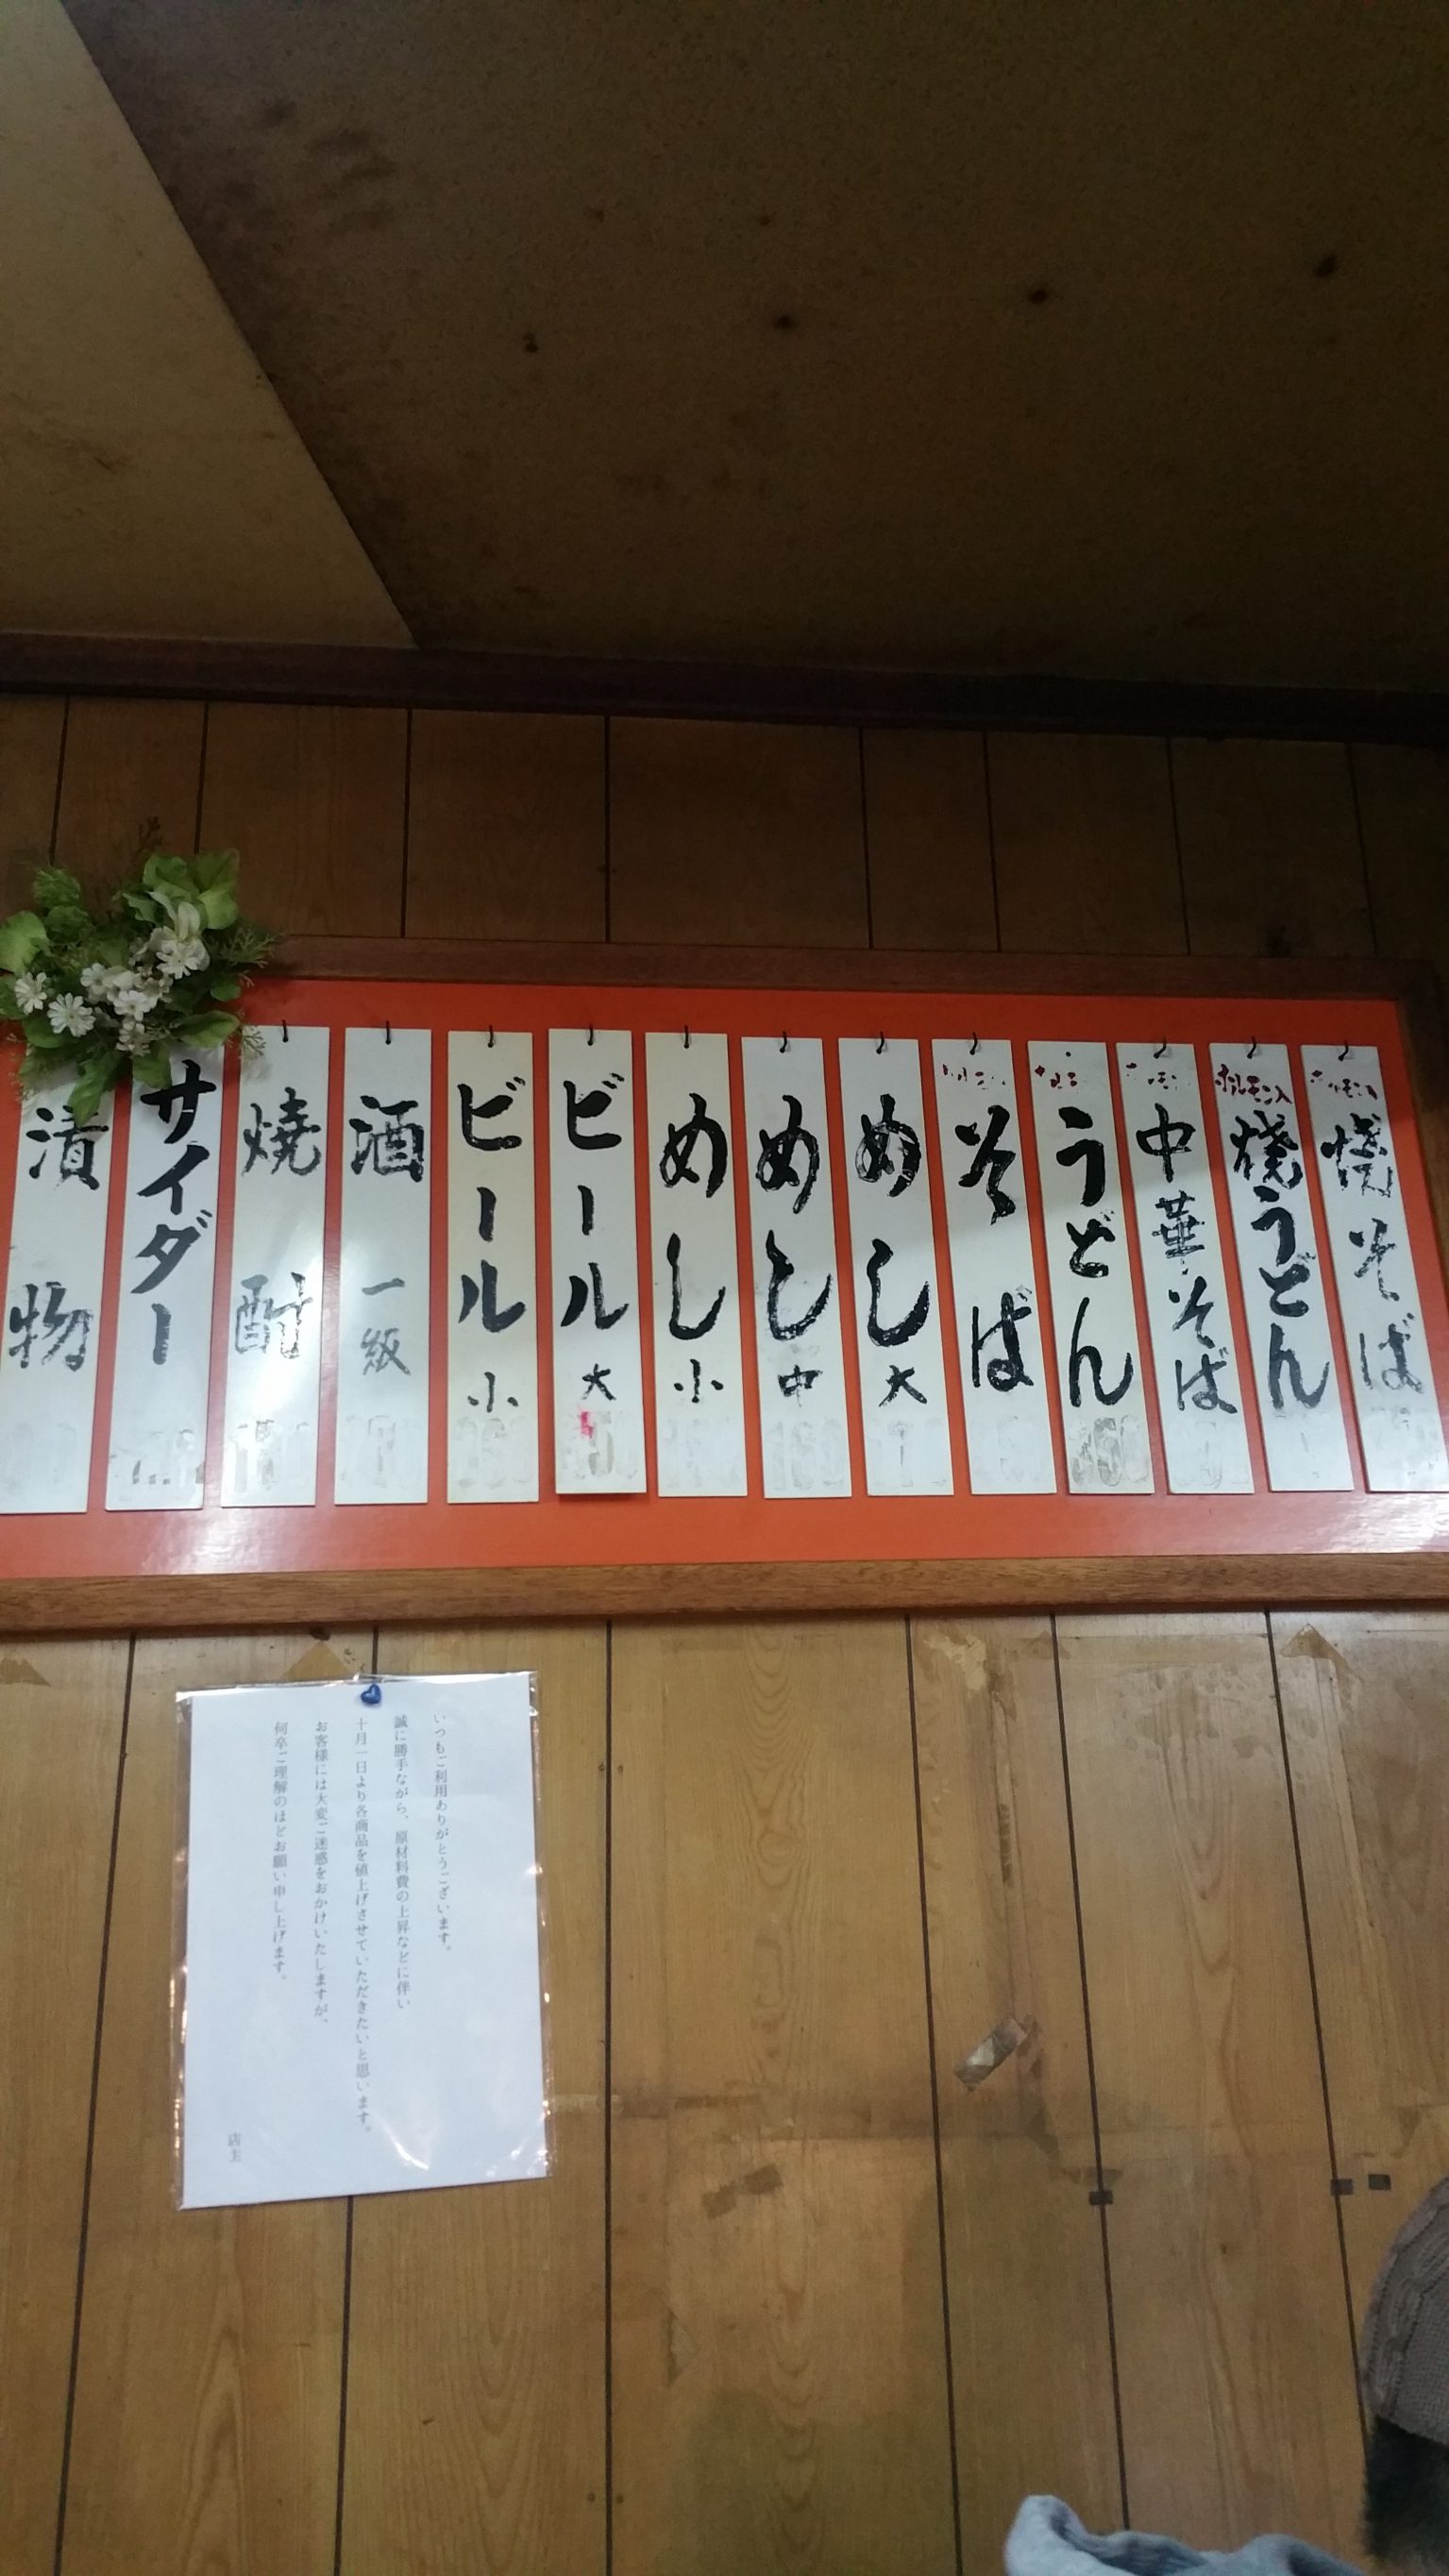 ホルモン入
焼そば
ホルモン入
焼うどん
中華そば
うどん
そば
めし 大
めし 中
めし 小
ビール 大
ビール 小
酒 一級
焼酎
サイダー
漬物
いつもご利用ありがとうございます。
誠に勝手ながら、原材料費の上昇などに伴い
十月一日より各商品を値上げさせていただきたいと思います。
お客様には大変ご迷惑をおかけいたしますが、
何卒ご理解のほどお願い申し上げます。
店主